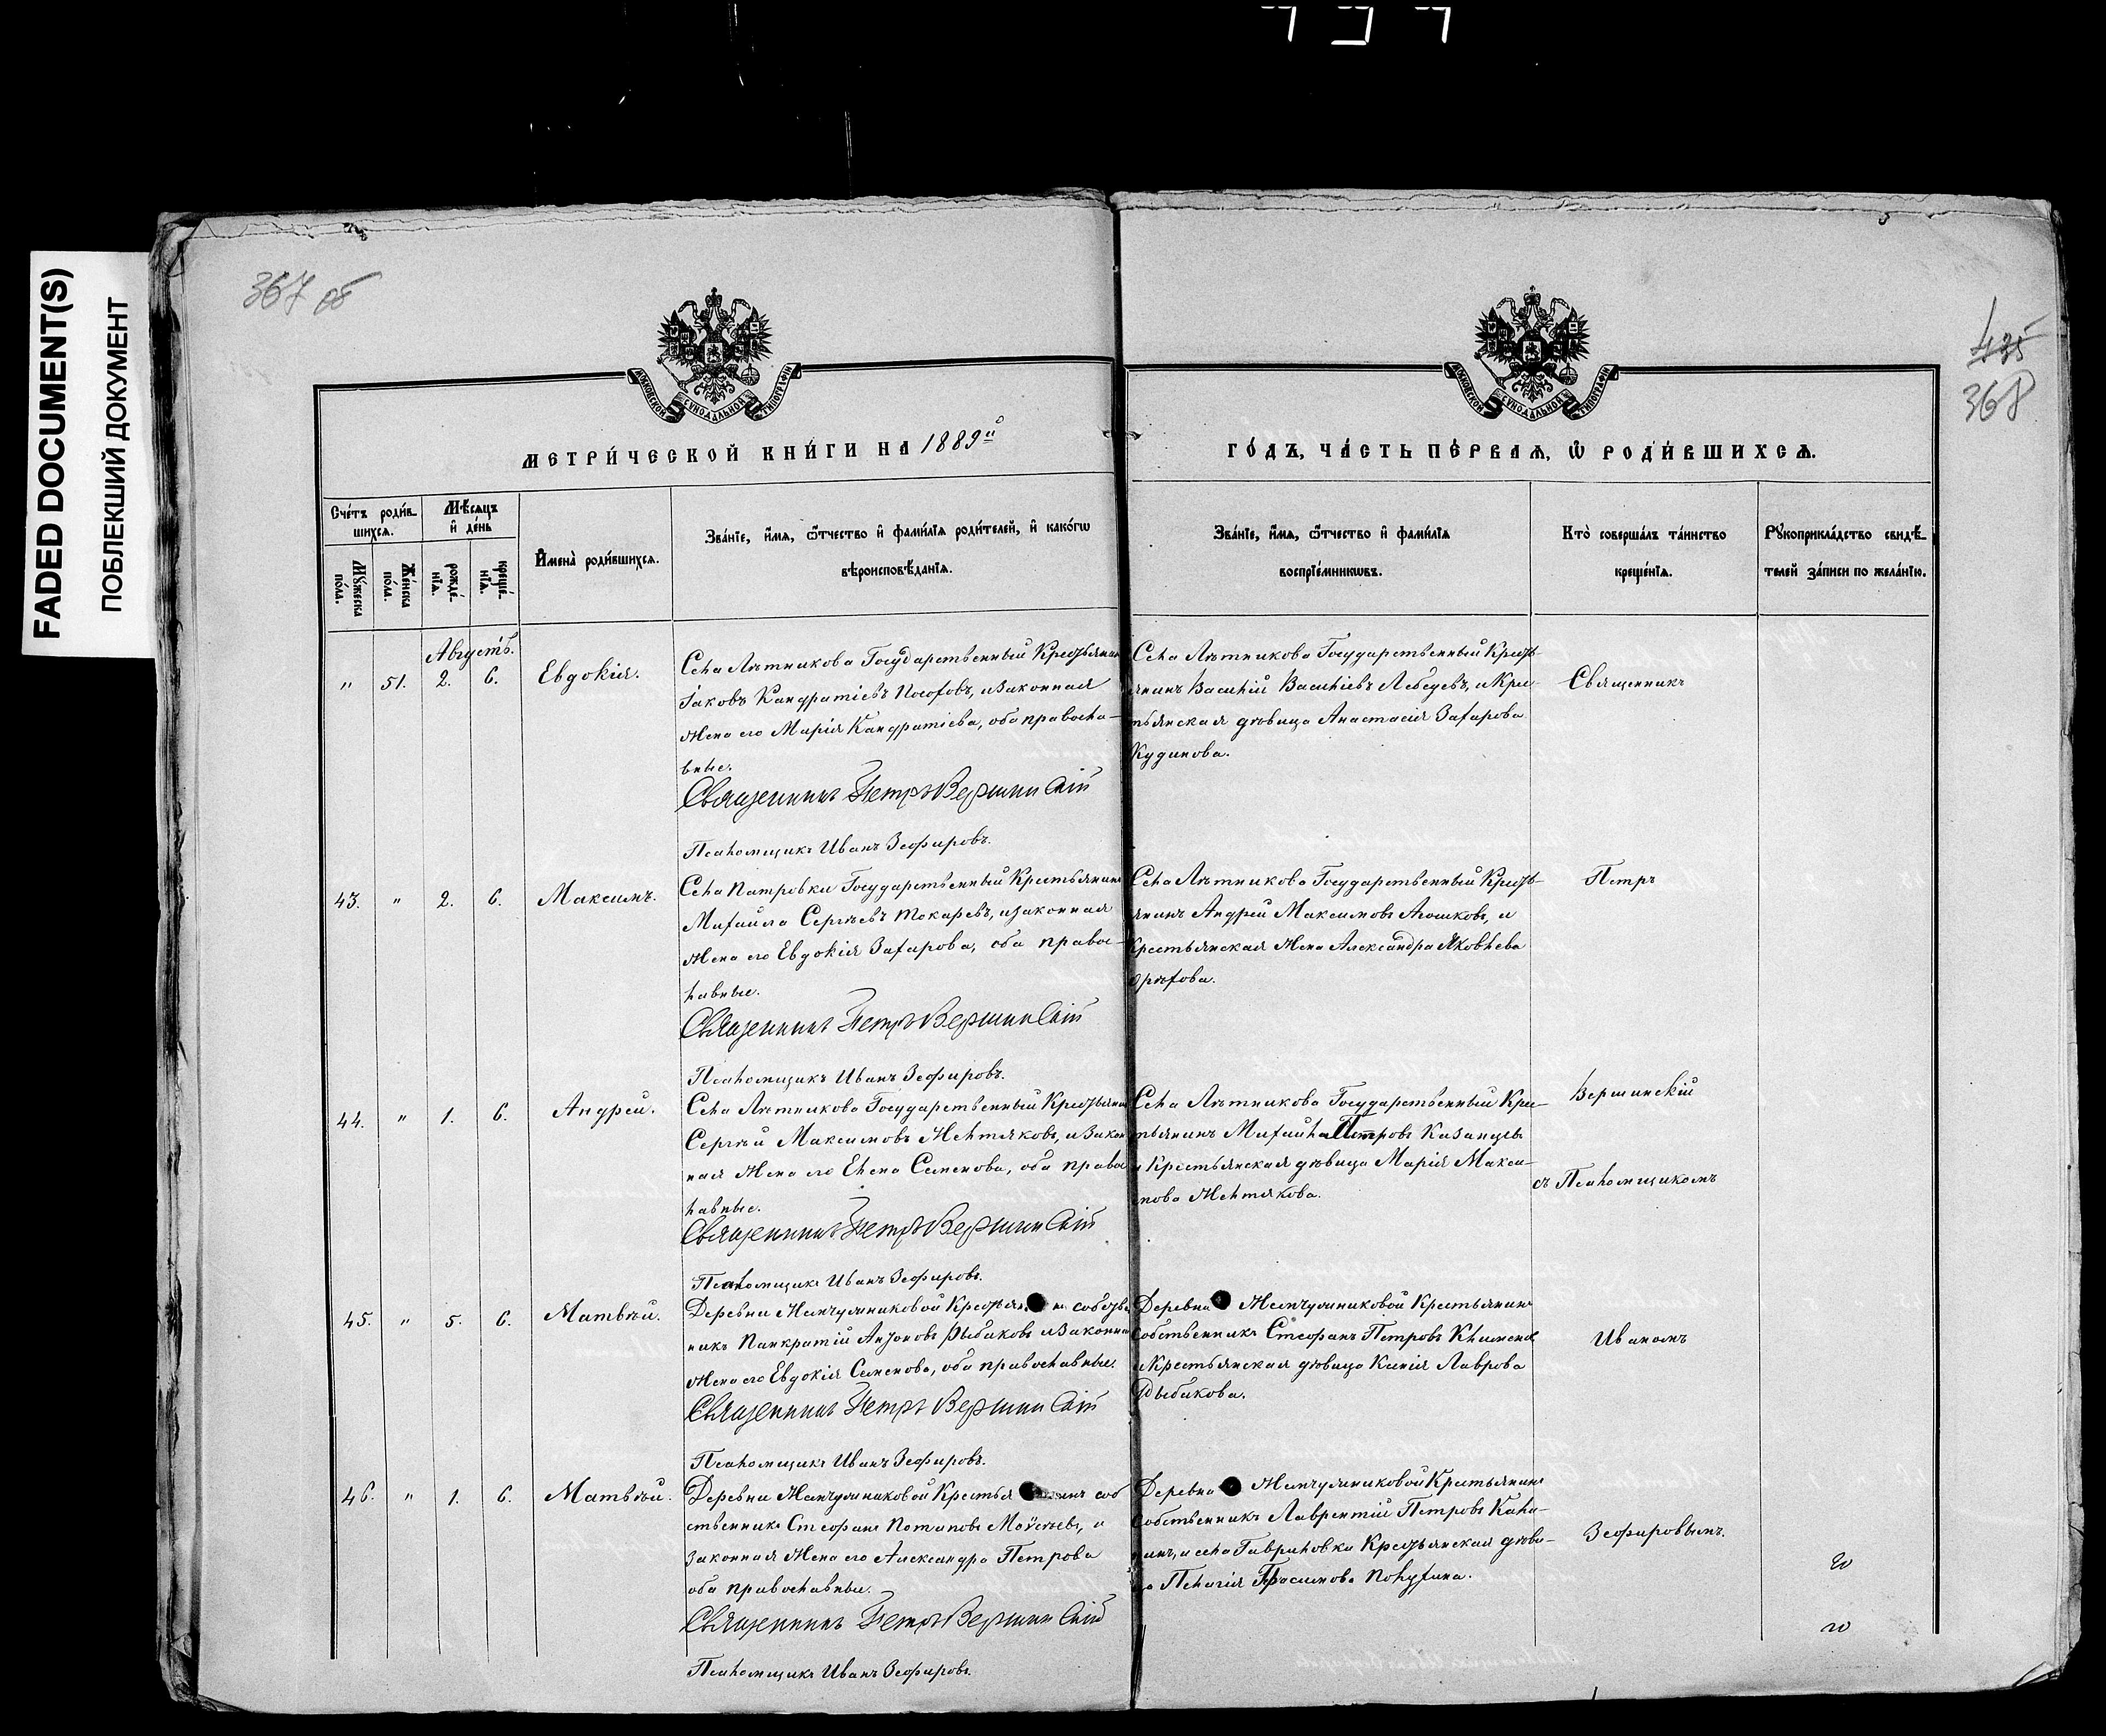 FADED DOCUMENT(S)
ПОБЛЕКШИЙ ДОКУМЕНТ
367 об
435
368
МОСКОВСКОЙ СѴНОДАЛЬНОЙ ТИПОГРАФІИ
МОСКОВСКОЙ СѴНОДАЛЬНОЙ ТИПОГРАФІИ
МЕТРИ́ЧЕСКОЙ КНИ́ГИ НА 1889й
ГО́ДЪ, ЧА́СТЬ ПЕ́РВАѦ, Ѽ РОДИ́ВШИХСѦ.
Сче́тъ роди́в-
шихсѧ.
Мꙋ́жеска по́ла.
Же́нска по́ла.
Мѣ́сѧцъ
и҆ де́нь
рожде́-
нїѧ.
креще́-
нїѧ.
И҆мена̀ роди́вшихсѧ.
Зва́нїе, и҆́мѧ, ѻ҆́тчество и҆ фами́лїѧ роди́телей, и҆ како́гѡ
вѣроисповѣ́данїѧ.
Зва́нїе, и҆́мѧ, ѻ҆́тчество и҆ фами́лїѧ
воспрїе́мникѡвъ.
Кто̀ соверша́лъ та́инство
креще́нїѧ.
Рꙋкоприкла́дство свидѣ́-
телей за́писи по жела́нїю.
Августъ.
" 51. 2. 6. Евдокія.
Села Лѣтникова Государственный Крестьянинъ
Іаковъ Кандратіевъ Носовъ, и законная
жена его Марія Кандратіева, оба правосла-
вные.
Священникъ Петръ Вершинскій
Псаломщикъ Иванъ Зефировъ.
Села Лѣтникова Государственный Кресть-
янинъ Василій Василіевъ Лебедевъ, и Крес-
тьянская дѣвица Анастасія Захарова
Кудинова.
Священникъ
43. " 2. 6. Максимъ.
Села Патровки Государственный Крестьянинъ
Михаилъ Сергѣевъ Токаревъ, и законная
жена его Евдокія Захарова, оба правос-
лавные.
Священникъ Петръ Вершинскій
Псаломщикъ Иванъ Зефировъ.
Села Лѣтникова Государственный Кресть-
янинъ Андрей Максимовъ Агошковъ, и
Крестьянская жена Александра Яковлева
Орѣхова.
Петръ
44. " 1. 6. Андрей.
Села Лѣтникова Государственный Крестьянинъ
Сергѣй Максимовъ Желтяковъ, и закон
ная жена его Елена Семенова, оба правос
лавные.
Священникъ Петръ Вершинскій
Псаломщикъ Иванъ Зефировъ.
Села Лѣтникова Государственный Крес-
тьянинъ Михаилъ Петровъ Казанцевъ
и Крестьянская дѣвица Марія Макси-
мова Желтякова.
Вершинскій
съ Псаломщикомъ
45. " 5. 6. Матвѣй.
никъ Панкратій Антоновъ Рыбаковъ и законная
жена его Евдокія Семенова, оба православные.
Священникъ Петръ Вершинскій
Псаломщикъ Иванъ Зефировъ.
Крестьянинъ
собственникъ Стефанъ Петровъ Клименов
и Крестьянская дѣвица Ксенія Лаврова
Рыбакова.
Иваномъ
46. " 1. 6. Матвѣй.
ственникъ Стефанъ Потаповъ Моисѣевъ, и
законная жена его Александра Петрова
оба православные.
Священникъ Петръ Вершинскій
Псаломщикъ Иванъ Зефировъ.
Крестьянинъ
собственникъ Лаврентій Петровъ Кали-
нинъ, и села Гавриловки Крестьянская дѣви-
ца Пелагія
Зефировымъ.